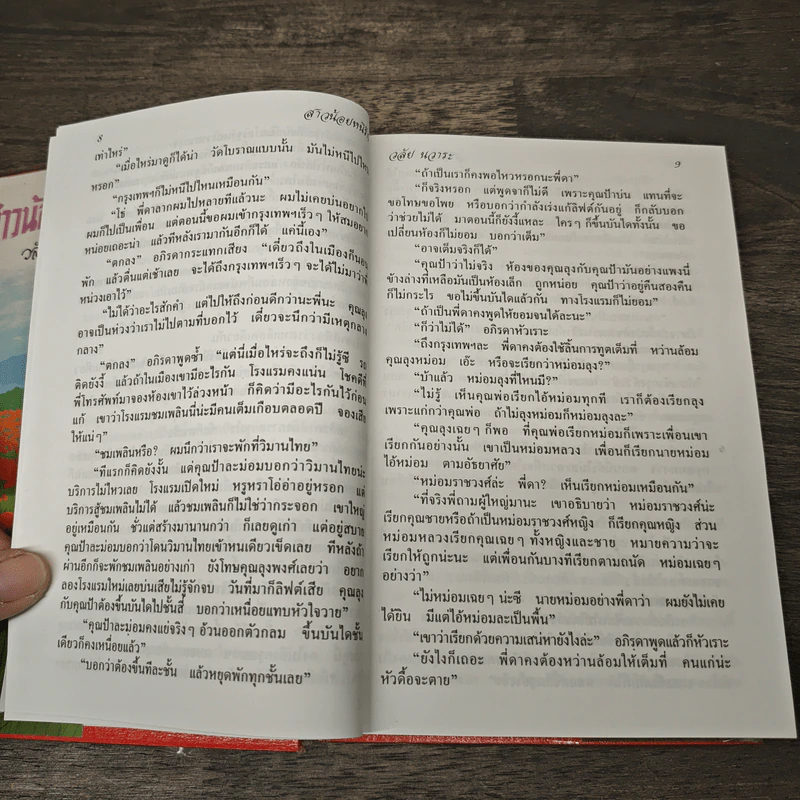 ๘
สาวน้อยหนี
เท่าไหร่”
“เมื่อไหร่มาดูก็ได้น่า วัดโบราณแบบนั้น มันไม่หนีไปไหน
หรอก”
“กรุงเทพฯก็ไม่หนีไปไหนเหมือนกัน”
“โธ่ พี่ดาลากผมไปหลายทีแล้วนะ ผมไม่เคยบ่นอยากไป
ผมก็ไปเป็นเพื่อน แต่ตอนนี้ขอผมเข้ากรุงเทพฯเร็วๆ ให้สมอยาก
หน่อยเถอะน่า แล้วทีหลังเรามากันอีกก็ได้ แค่นี้เอง”
“ตกลง” อภิรดากระแทกเสียง “เดี๋ยวถึงในเมืองก็นอน
พัก แล้วตื่นแต่เช้าเลย จะได้ถึงกรุงเทพฯเร็วๆ จะได้ไม่มาว่าพี่
หน่วงเอาไว้”
“ไม่ได้ว่าอะไรสักคำ แต่ไปให้ถึงก่อนดีกว่านะพี่นะ คุณลุง
อาจเป็นห่วงว่าเราไม่ไปตามที่บอกไว้ เดี๋ยวจะนึกว่ามีเหตุกลาง
กลาง”
“ตกลง” อภิรดาพูดซ้ำ “แต่นี่เมื่อไหร่จะถึงก็ไม่รู้ซี รถ
ติดยังงี้ แล้วถ้าในเมืองเขามีอะไรกัน โรงแรมคงแน่น โชคดีที่
พี่โทรศัพท์มาจองห้องเขาไว้ล่วงหน้า ก็คิดว่ามีอะไรกันไว้ก่อน
แก้ เขาว่าโรงแรมชมเพลินนี่น่ะมีคนเต็มเกือบตลอดปี จองเสีย
ให้แน่ๆ”
“ชมเพลินหรือ? ผมนึกว่าเราจะพักที่วิมานไทย”
“ทีแรกก็คิดยังงั้น แต่คุณป้าละม่อมบอกว่าวิมานไทยน่ะ
บริการไม่ไหวเลย โรงแรมเปิดใหม่ หรูหราโอ่อ่าอยู่หรอก แต่
บริการสู้ชมเพลินไม่ได้ แล้วชมเพลินก็ไม่ใช่ว่ากระจอก เขาใหญ่
อยู่เหมือนกัน ชั่วแต่สร้างมานานกว่า ก็เลยดูเก่า แต่อยู่สบาย
คุณป้าละม่อมบอกว่าโดนวิมานไทยเข้าหนเดียวเข็ดเลย ทีหลังถ้า
ผ่านอีกก็จะพักชมเพลินอย่างเก่า ยังโทษคุณลุงพงศ์เลยว่า อยาก
ลองโรงแรมใหม่เลยบ่นเสียไม่รู้จักจบ วันที่มาก็ลิฟต์เสีย คุณลุง
กับคุณป้าต้องขึ้นบันไดไปชั้นสี่ บอกว่าเหนื่อยแทบหัวใจวาย”
“คุณป้าละม่อมคงแย่จริงๆ อ้วนออกตัวกลม ขึ้นบันไดชั้น
เดียวก็คงเหนื่อยแล้ว”
“บอกว่าต้องขึ้นทีละชั้น แล้วหยุดพักทุกชั้นเลย”
วลัย นวาระ
๙
“ถ้าเป็นเราก็คงพอไหวหรอกนะพี่ดา”
“ก็จริงหรอก แต่พูดจาก็ไม่ดี เพราะคุณป้าบ่น แทนที่จะ
ขอโทษขอโพย หรือบอกว่ากำลังเร่งแก้ลิฟต์กันอยู่ ก็กลับบอก
ว่าช่วยไม่ได้ มาตอนนี้ก็ยังงี้แหละ ใครๆ ก็ขึ้นบันไดทั้งนั้น ขอ
เปลี่ยนห้องก็ไม่ยอม บอกว่าเต็ม”
“อาจเต็มจริงก็ได้”
“คุณป้าว่าไม่จริง ห้องของคุณลุงกับคุณป้ามันอย่างแพงนี่
ข้างล่างที่เหลือมันเป็นห้องเล็ก ถูกหน่อย คุณป้าว่าอยู่คืนสองคืน
ก็ไม่กระไร ขอไม่ขึ้นบันไดแล้วกัน ทางโรงแรมก็ไม่ยอม”
“ถ้าเป็นพี่ดาคงพูดให้ยอมจนได้ละนะ”
“ก็ว่าไม่ได้” อภิรดาหัวเราะ
“ถึงกรุงเทพฯละ พี่ดาคงต้องใช้ลิ้นการทูตเต็มที่ หว่านล้อม
คุณลุงหม่อม เอ๊ะ หรือจะเรียกว่าหม่อมลุง?”
“บ้าแล้ว หม่อมลุงที่ไหนมี?”
“ไม่รู้ เห็นคุณพ่อเรียกไอ้หม่อมทุกที เราก็ต้องเรียกลุง
เพราะแก่กว่าคุณพ่อ ถ้าไม่ลุงหม่อมก็หม่อมลุงละ”
“คุณลุงเฉยๆ ก็พอ ที่คุณพ่อเรียกหม่อมก็เพราะเพื่อนเขา
เรียกกันอย่างนั้น เขาเป็นหม่อมหลวง เพื่อนก็เรียกนายหม่อม
ไอ้หม่อม ตามอัธยาศัย”
“หม่อมราชวงศ์ล่ะ พี่ดา? เห็นเรียกหม่อมเหมือนกัน”
“ที่จริงพี่ถามผู้ใหญ่มานะ เขาอธิบายว่า หม่อมราชวงศ์น่ะ
เรียกคุณชายหรือถ้าเป็นหม่อมราชวงศ์หญิง ก็เรียกคุณหญิง ส่วน
หม่อมหลวงเรียกคุณเฉยๆ ทั้งหญิงและชาย หมายความว่าจะ
เรียกให้ถูกน่ะนะ แต่เพื่อนกันบางทีเรียกตามถนัด หม่อมเฉยๆ
อย่างว่า”
“ไม่หม่อมเฉยๆ น่ะซี นายหม่อมอย่างพี่ดาว่า ผมยังไม่เคย
ได้ยิน มีแต่ไอ้หม่อมละเป็นพื้น”
“เขาว่าเรียกด้วยความเสน่หายังไงล่ะ” อภิรดาพูดแล้วก็หัวเราะ
“ยังไงก็เถอะ พี่ดาคงต้องหว่านล้อมให้เต็มที่ คนแก่น่ะ
หัวดื้อจะตาย”